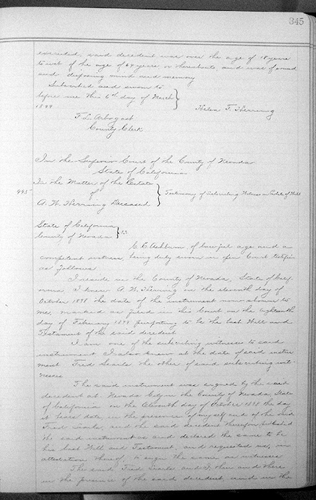 345
executed, said decedent was over the age of 18 years
to wit of the age of 69 years or thereabouts and was of sound
and disposing mind and memory
Subscribed and sworn to
before me this 6th day of March
1899
Helen F. Herring
F. L. Arbogast
County Clerk
In the Superior Court of the County of Nevada
State of California
In the Matter of the Estate
of
A. W. Herring Deceased
Testimony of Subscribing Witness on Probate of Will
State of California
County of Nevada } SS
C. C. Ashburn of lawful age and a
competent witness being duly sworn in open Court testifies
as follows
I reside in the County of Nevada, State of Calif
ornia I knew A. W. Herring on the eleventh day of
October 1898 the date of the instrument now shown to
me marked as filed in this Court on the eighteenth
day of February 1899 purporting to be the last Will and
Testament of the said decedent.
I am one of the subscribing witnesses to said
instrument I also knew at the date of said instru
ment Fred Searls the other of said subscribing wit
nesses
The said instrument was signed by the said
decedent at Nevada City in the County of Nevada State
of California on the eleventh day of October 1898 the day
it bears date in the presence of myself and of the said
Fred Searls, and the said decedent thereupon published
the said instrument as and declared the same to be
his last Will and Testament, and requested us in
attestation thereof, to sign the same as witnesses
The said Fred Searls and I then and there
in the presence of the said decedent, and in the